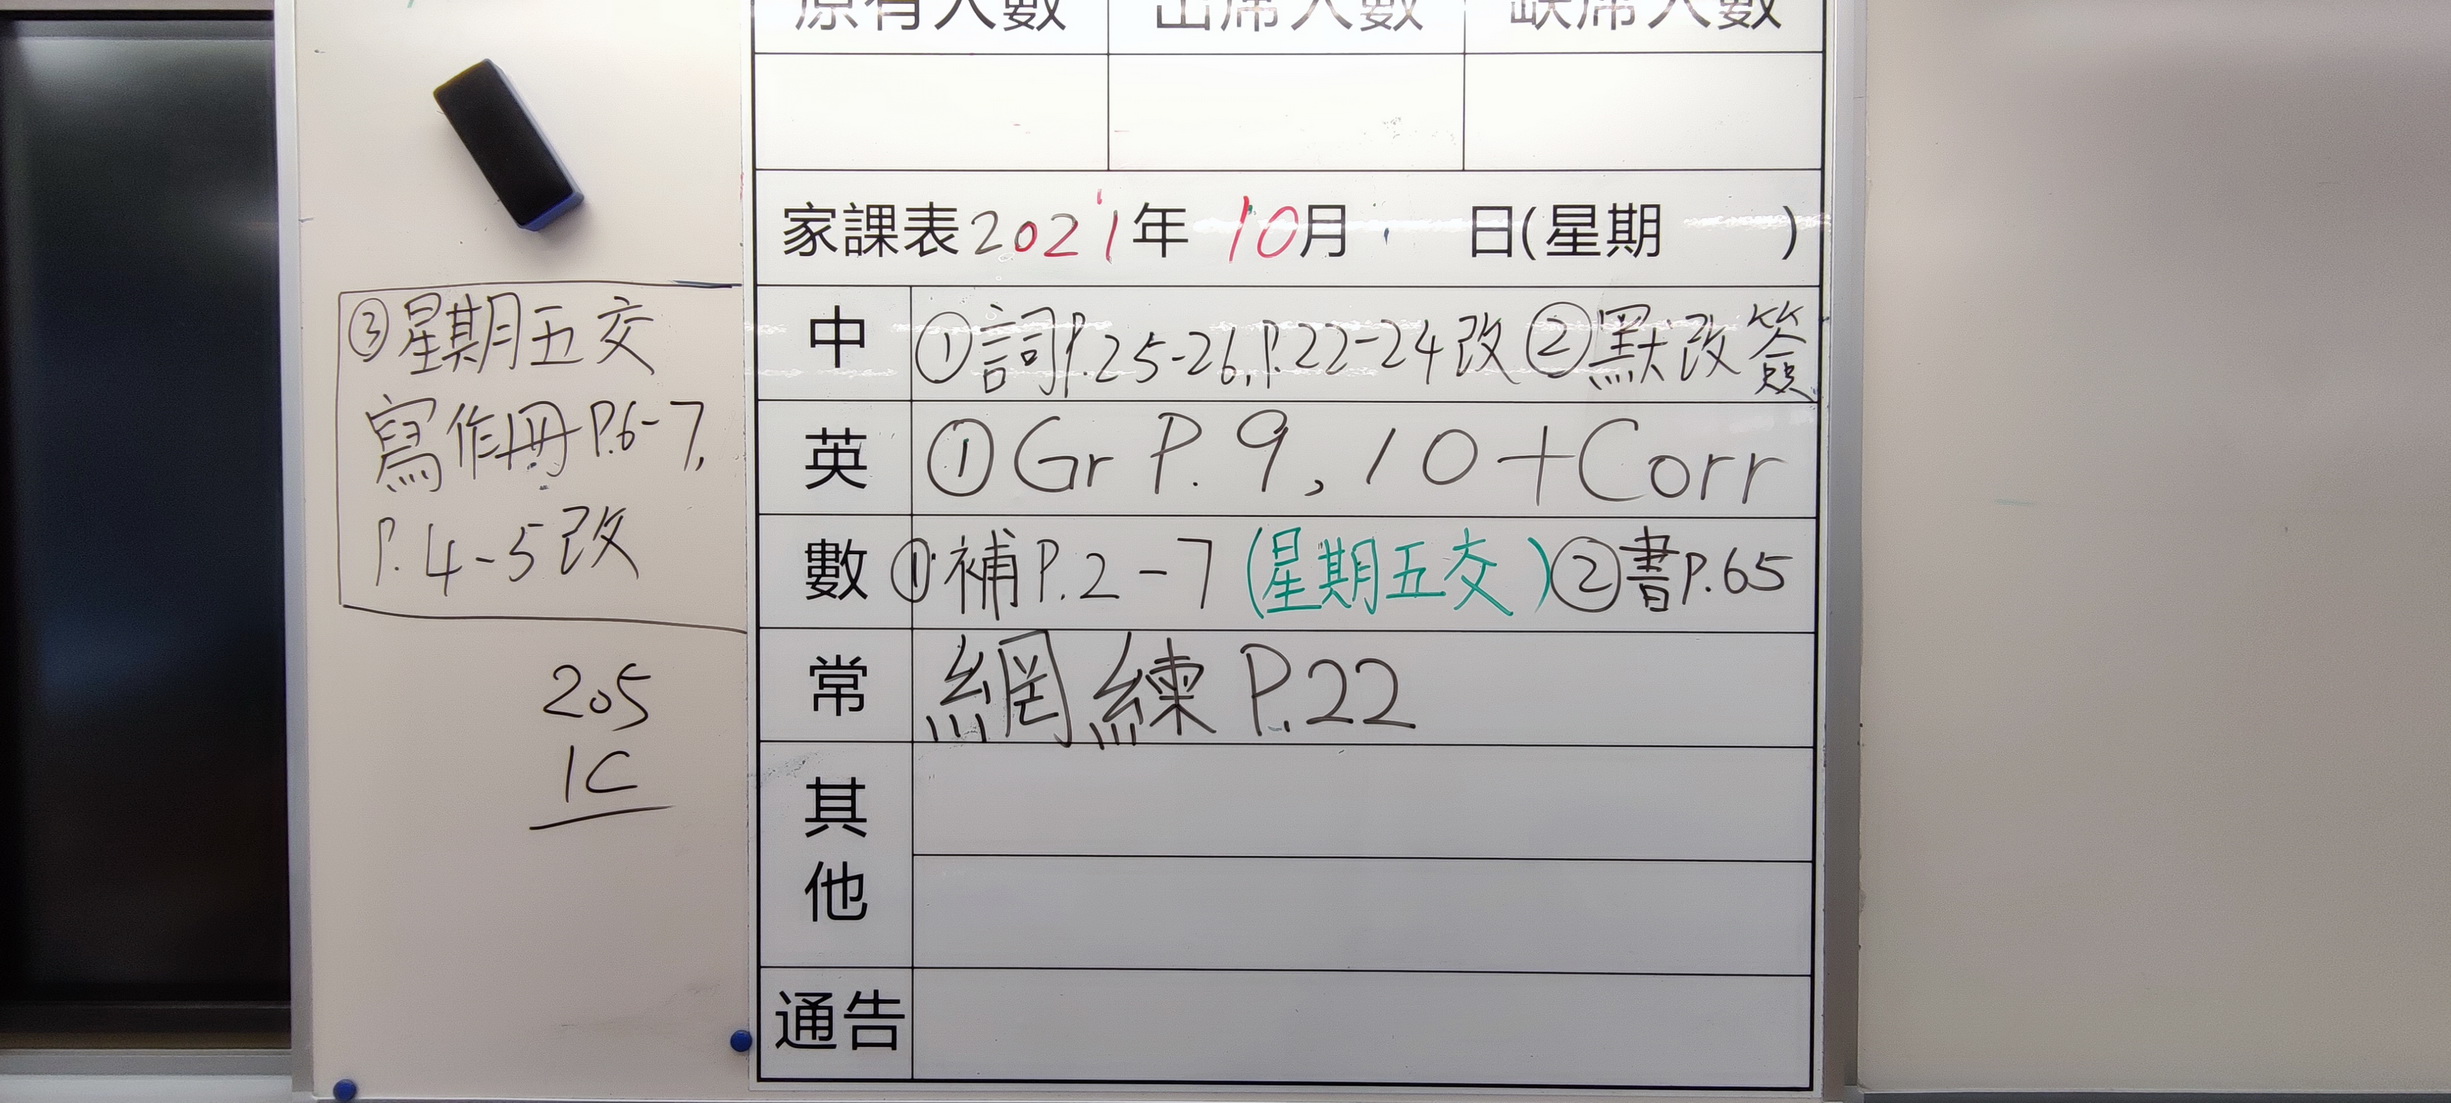 原有人數 出席人數 缺席人數
家課表2021年 10月 日(星期 )
中 ①詞P.25-26,P.22-24改 ②默改簽
③星期五交
寫作冊P.6-7,
P.4-5改
英 ①Gr P.9,10+Corr
數 ①補P.2-7(星期五交)②書P.65
常 網練P.22
205
1C
其他
通告